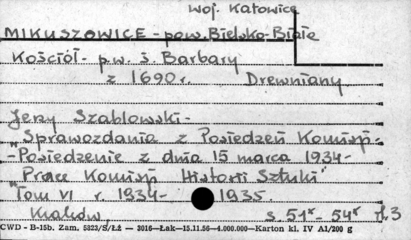 woj. Katowice
MIKUSZOWICE - pow. Bielsko-Biała
Kościół - p.w. ś. Barbary
z 1690 r. Drewniany
Jerzy Szablowski -
"Sprawozdania z Posiedzeń Komisji -
- Posiedzenie z dnia 15 marca 1934 -
"Prace Komisji Historii Sztuki"
Tom VI r. 1934 - 1935.
Kraków, s. 51* - 54*
CWD - B-15b. Zam. 5823/S/Łż — 3016—Łak—15.11.56—4.000.000—Karton kl. IV A1/200 g